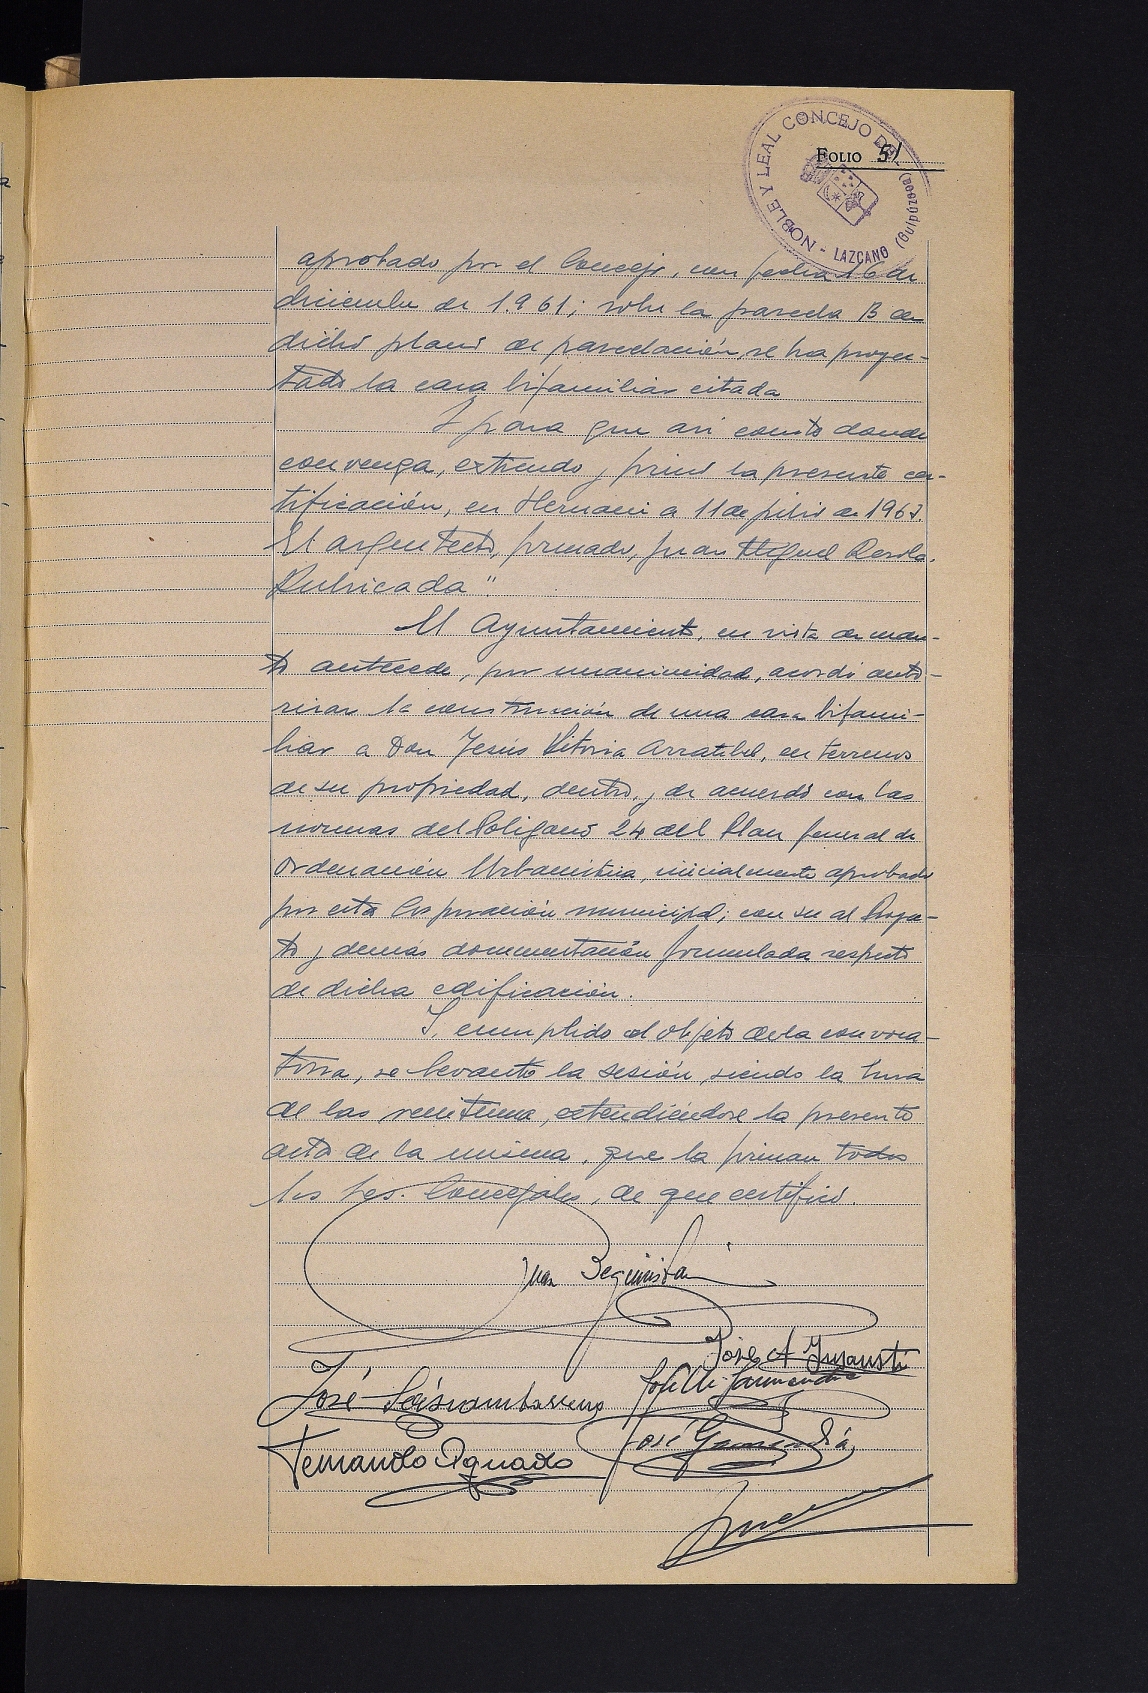 NOBLE Y LEAL CONCEJO DE - LAZCANO (Guipúzcoa)
FOLIO 51
aprobado por el Concejo, con fecha 16 de
diciembre de 1.961; sobre la parcela B de
dicho plano de parcelación se ha proyec-
tado la casa bifamiliar citada
Y para que así conste donde
convenga, extiendo y firmo la presente cer-
tificación, en Hernani a 11 de julio de 1963.
El arquitecto, firmado, Juan Miguel
Rubricada".
El Ayuntamiento, en vista de cuan-
to antecede, por unanimidad, acordó auto-
rizar la construcción de una casa bifami-
liar a Don Jesús Vitoria Arratibel, en terrenos
de su propiedad, dentro y de acuerdo con las
normas del Poligano 24 del Plan General de
Ordenación Urbanística, inicialmente aprobado
por esta Corporación municipal; con su al Proyec-
to y demás documentación formulada respecto
de dicha edificación.
Y, cumplido el objeto de la convoca-
toria, se levantó la sesión, siendo la hora
de las veintiuna, extendiéndose la presente
acta de la misma, que la firman todos
los Sres. Concejales, de que certifico.
Juan Beguiristain
José A. Insausti
José
José Garmendia
Fernando Aguado